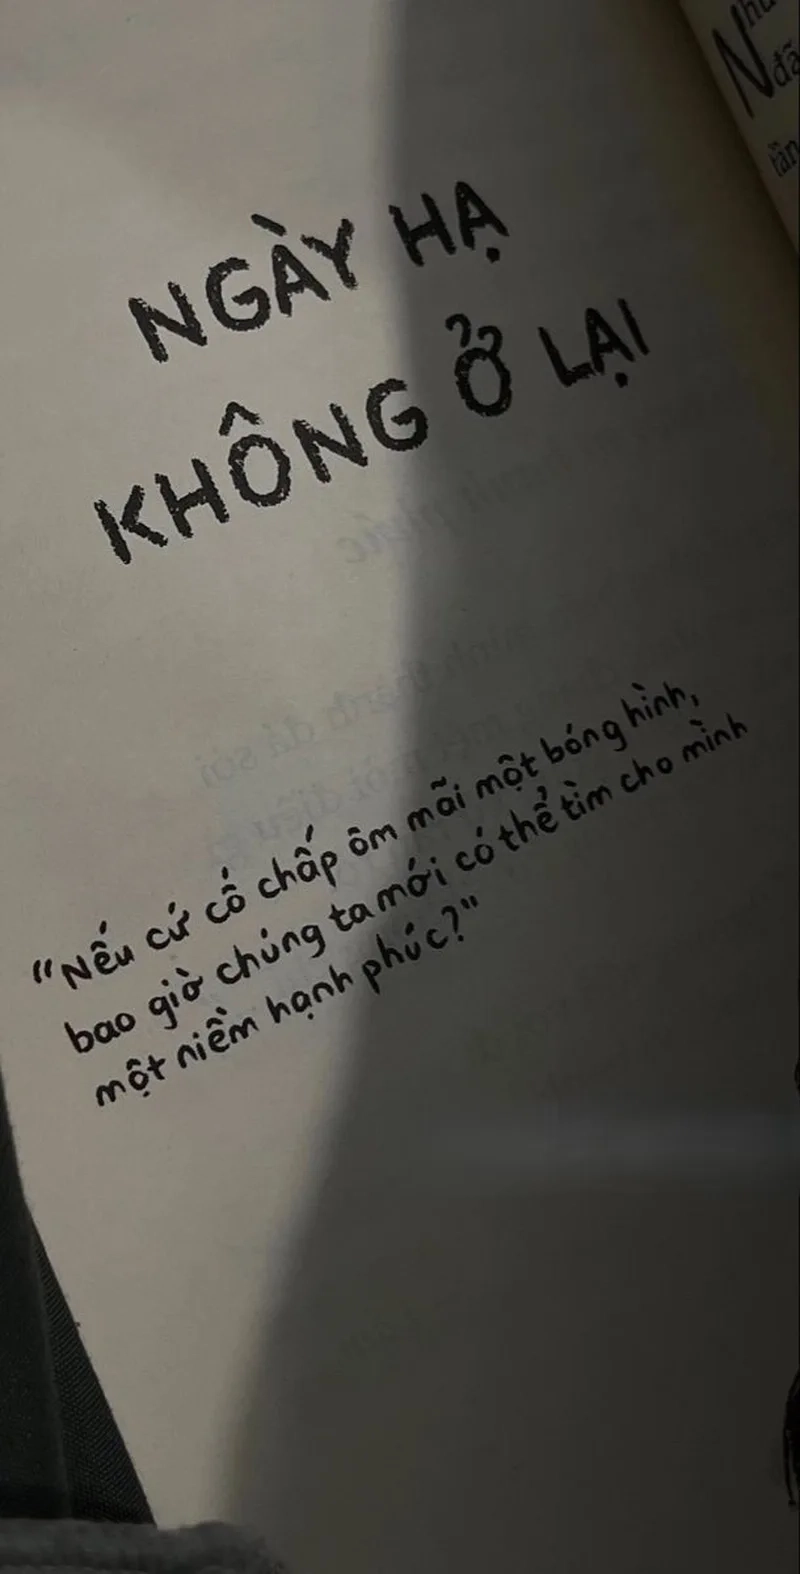 NGÀY HẠ
KHÔNG Ở LẠI
"Nếu cứ cố chấp ôm mãi một bóng hình,
bao giờ chúng ta mới có thể tìm cho mình
một niềm hạnh phúc?"
đã